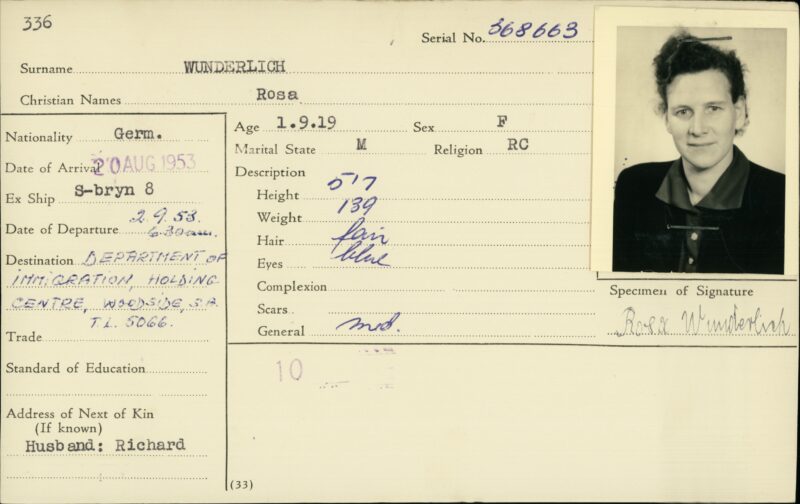 336
Serial No. 368663
Surname WUNDERLICH
Christian Names Rosa
Nationality Germ.
Date of Arrival 20 AUG 1953
Ex Ship S-bryn 8
Date of Departure 2.9.53.
6.30am.
Destination DEPARTMENT OF
IMMIGRATION, HOLDING
CENTRE, WOODSIDE, S.A.
T.L. 5066.
Trade
Standard of Education
Address of Next of Kin
(If known)
Husband: Richard
Age 1.9.19 Sex F
Marital State M Religion RC
Description
Height 5'7
Weight 139
Hair fair
Eyes blue
Complexion
Scars
General med.
Specimen of Signature
Rosa Wunderlich
10
(33)